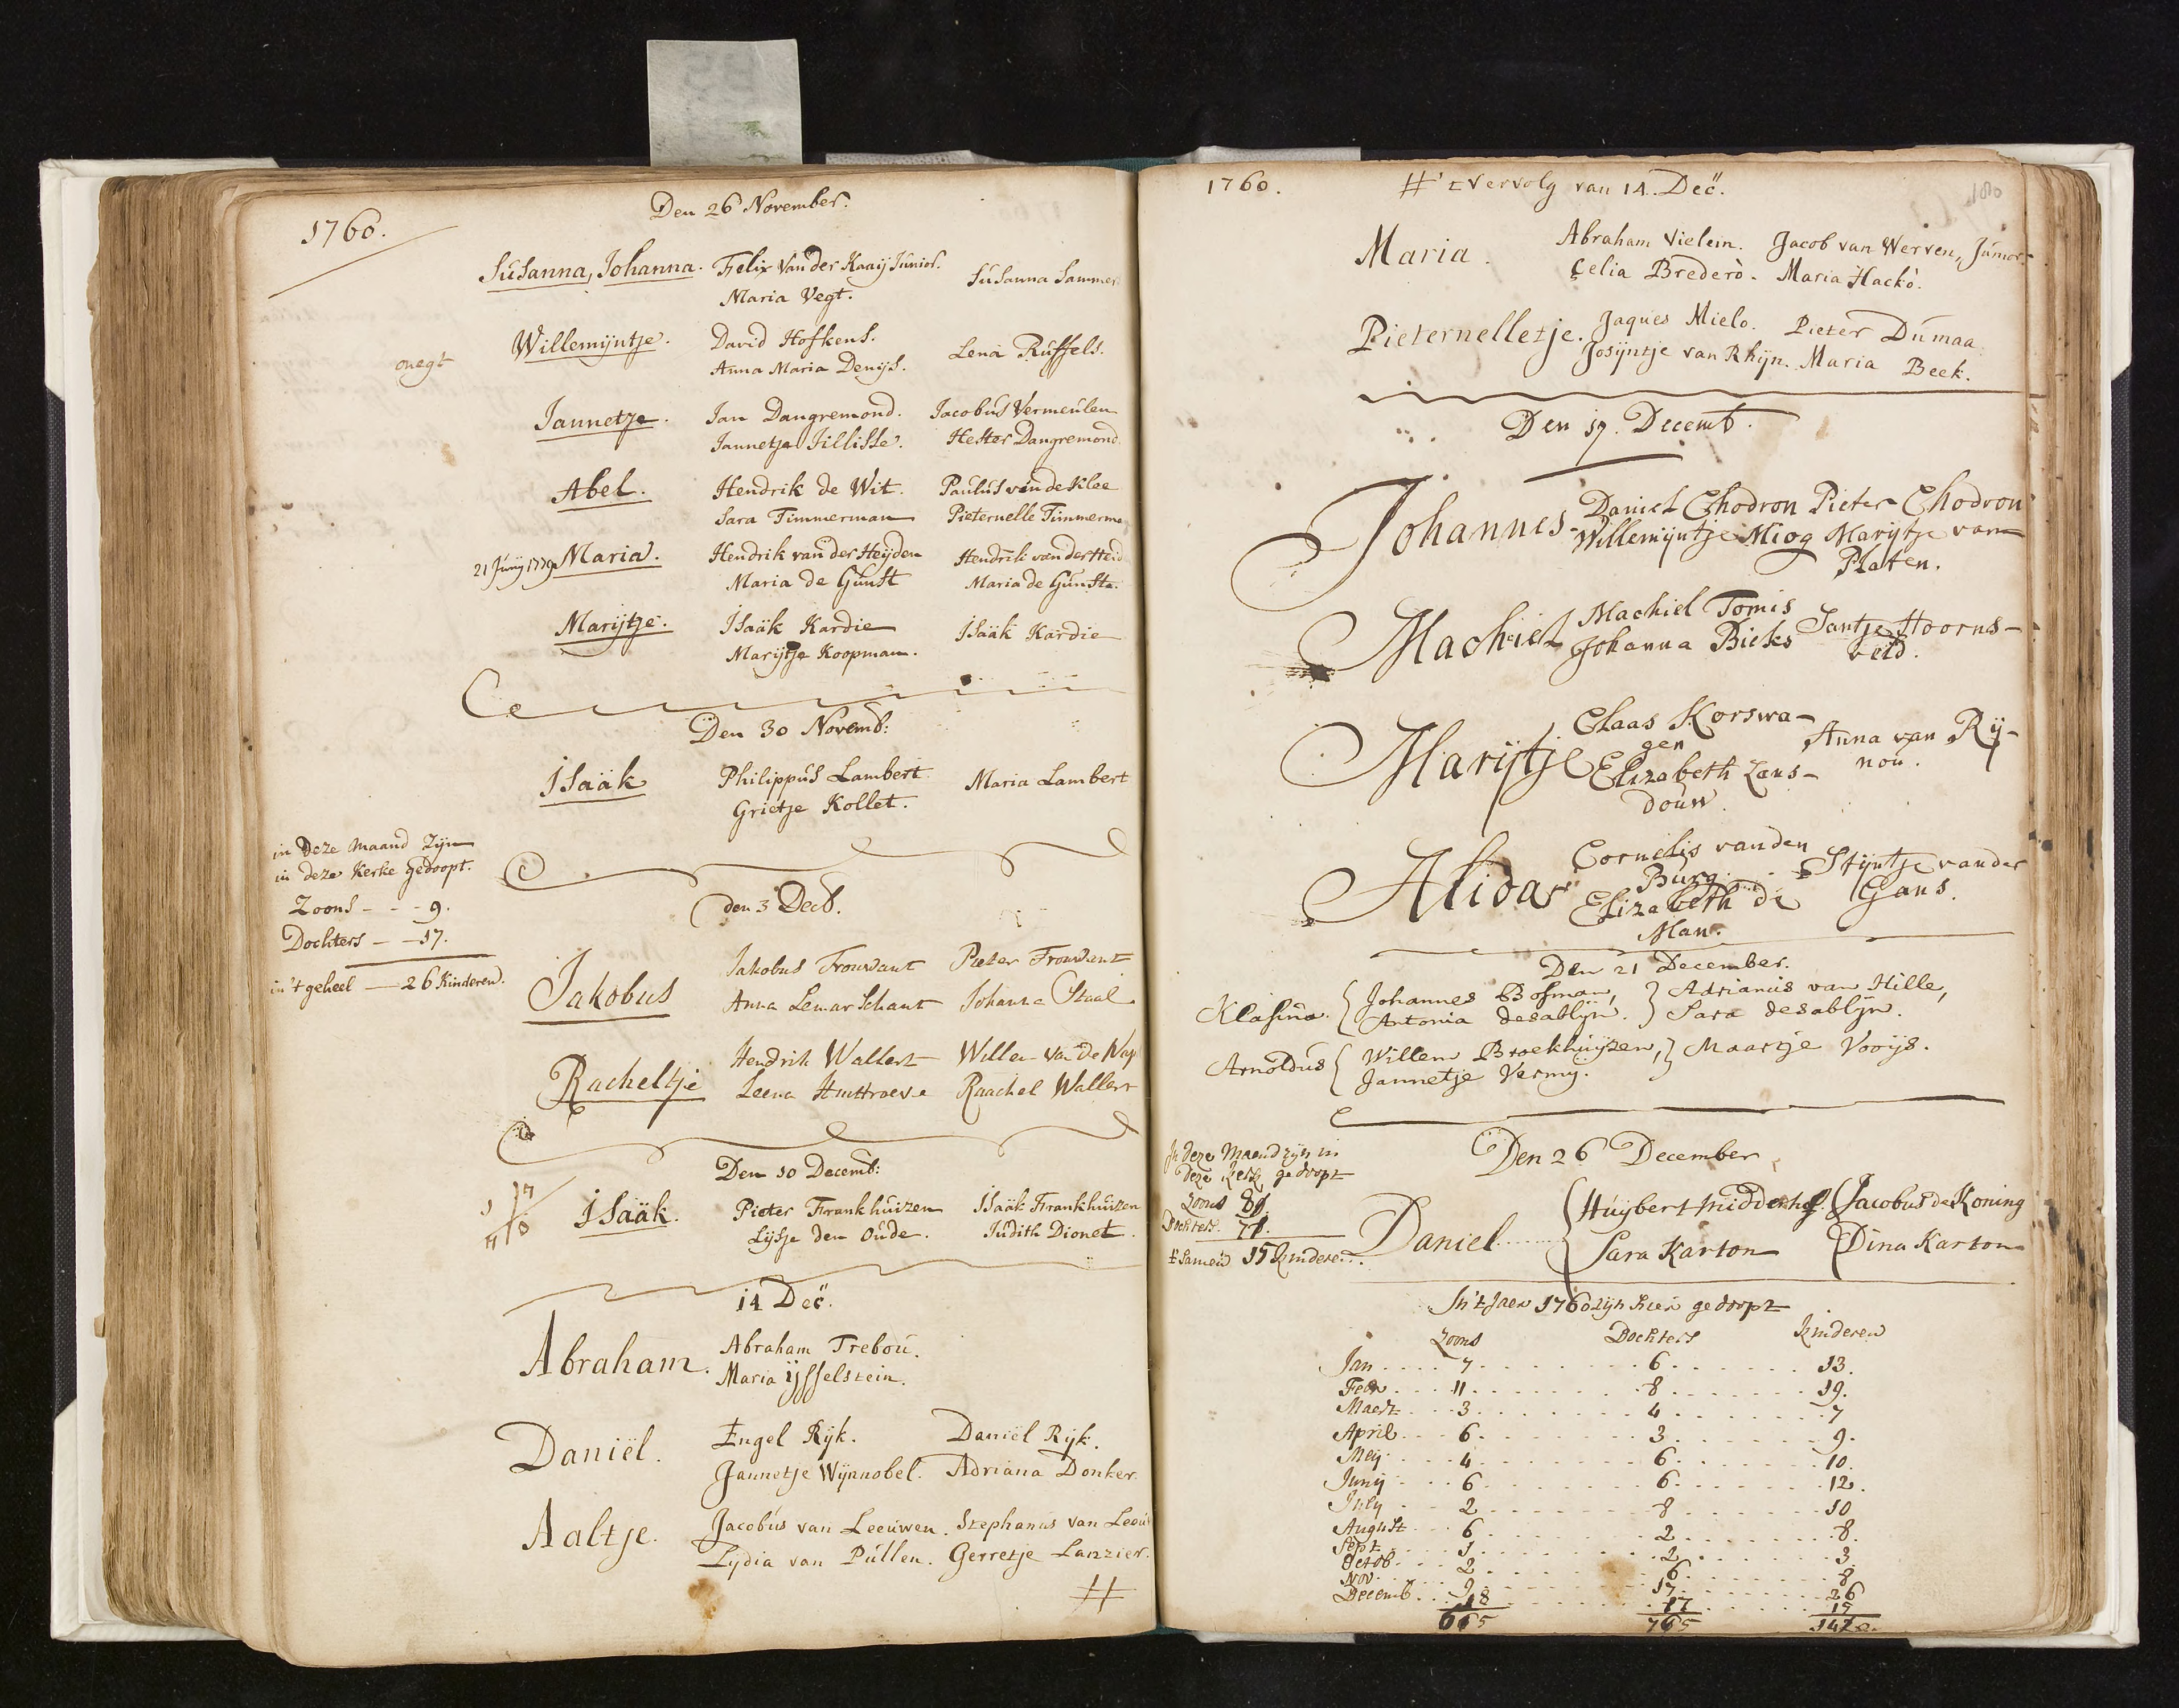 1760.
Den 26 November.
Susanna, Johanna. Felix van der Kaaij Junior.
Maria Vegt. Susanna Sammer
onegt Willemijntje. David Hofkens. Lena Ruffels.
Anna Maria Denijs.
Jannetje. Jan Dangremond. Jacobus Vermeulen
Jannetje Jillisse. Hester Dangremond.
Abel. Hendrik de Wit. Paulus van de Klee
Sara Timmerman Pieternelle Timmerma
21 Junij 1779 Maria. Hendrik van der Heijden Hendrik van der Heid
Maria de Gunst Maria de Gunste.
Marijtje. Isaäk Kardie Isaäk Kardie
Marijtje Koopman.
Den 30 Novemb:
Isaäk Philippus Lambert Maria Lambert
Grietje Kollet.
in Deze Maand Zijn
in deze Kerke gedoopt.
Zoons - - - 9.
Dochters - - 17.
in 't geheel - 26 Kinderen.
den 3 Decb.
Jakobus Jakobus Trouvant Pieter Trouvant
Anna Lemar Schant Johanna Staal
Racheltje Hendrik Wallert Willem van de
Leena Raachel Wallert
Den 10 Decemb:
Isaäk. Pieter Frankhuizen Isaäk Frankhuizen
Lijsje den Oude. Judith Dionet.
14 Dec.
Abraham. Abraham Trebou.
Maria ijsselstein.
Daniël. Engel Rijk. Daniël Rijk.
Jannetje Wijnnobel. Adriana Donker.
Aaltje. Jacobus van Leeuwen. Stephanus van Leeu
Lydia van Pullen. Gerretje Lanzier.
#
1760. # 't vervolg van 14. Dec.
180
Maria. Abraham Vielein. Jacob van Werven, Junior.
Celia Brederò. Maria Hackò.
Pieternelletje. Jaques Mielo. Pieter Dumaa
Josijntje van Rhijn. Maria Beek.
Den 17. Decemb.
Johannes Daniel Chodron Pieter Chodron
Willemijntje Miog Marijtje van
Platen.
Machiel Machiel Tomis Santje Hoorns-
Johanna Bieks veld.
Marijtje Claas Korswa-
gen Anna van Rij-
Elizabeth Zans- nou.
douw.
Alida Cornelis van den
Burg Stijntje vander
Elizabeth de Gans.
Man.
Den 21 December.
Klasina. { Johannes Bosman, } Adrianus van Hille,
Antonia desablijn. } Sara desablijn.
Arnoldus { Willem Broekhuijzen, } Maartje Vooijs.
Jannetje Vermij.
Den 26 December
In deze Maand zijn in
deze kerk gedoopt
Zoons 8
Dochters 7
t samen 15 kinderen.
Daniel { Huijbert Middenhof. { Jacobus de Koning
Sara Karton { Dina Karton
In 't Jaer 1760 zijn hier gedoopt
Zoons Dochters kinderen
Jan .... 7 .... 6 .... 13.
Febr ... 11 .... 8 .... 19.
Maert ... 3 .... 4 .... 7
April ... 6 .... 3 .... 9.
Meij ... 4 .... 6 .... 10.
Junij ... 6 .... 6 .... 12.
July ... 2 .... 8 .... 10
August ... 6 .... 2 .... 8.
Sept ... 1 .... 2 .... 3
Octob ... 2 .... 6 .... 8.
Nov ... 9 .... 17 .... 26
Decemb ... 8 .... 7 .... 15
65 75 140.